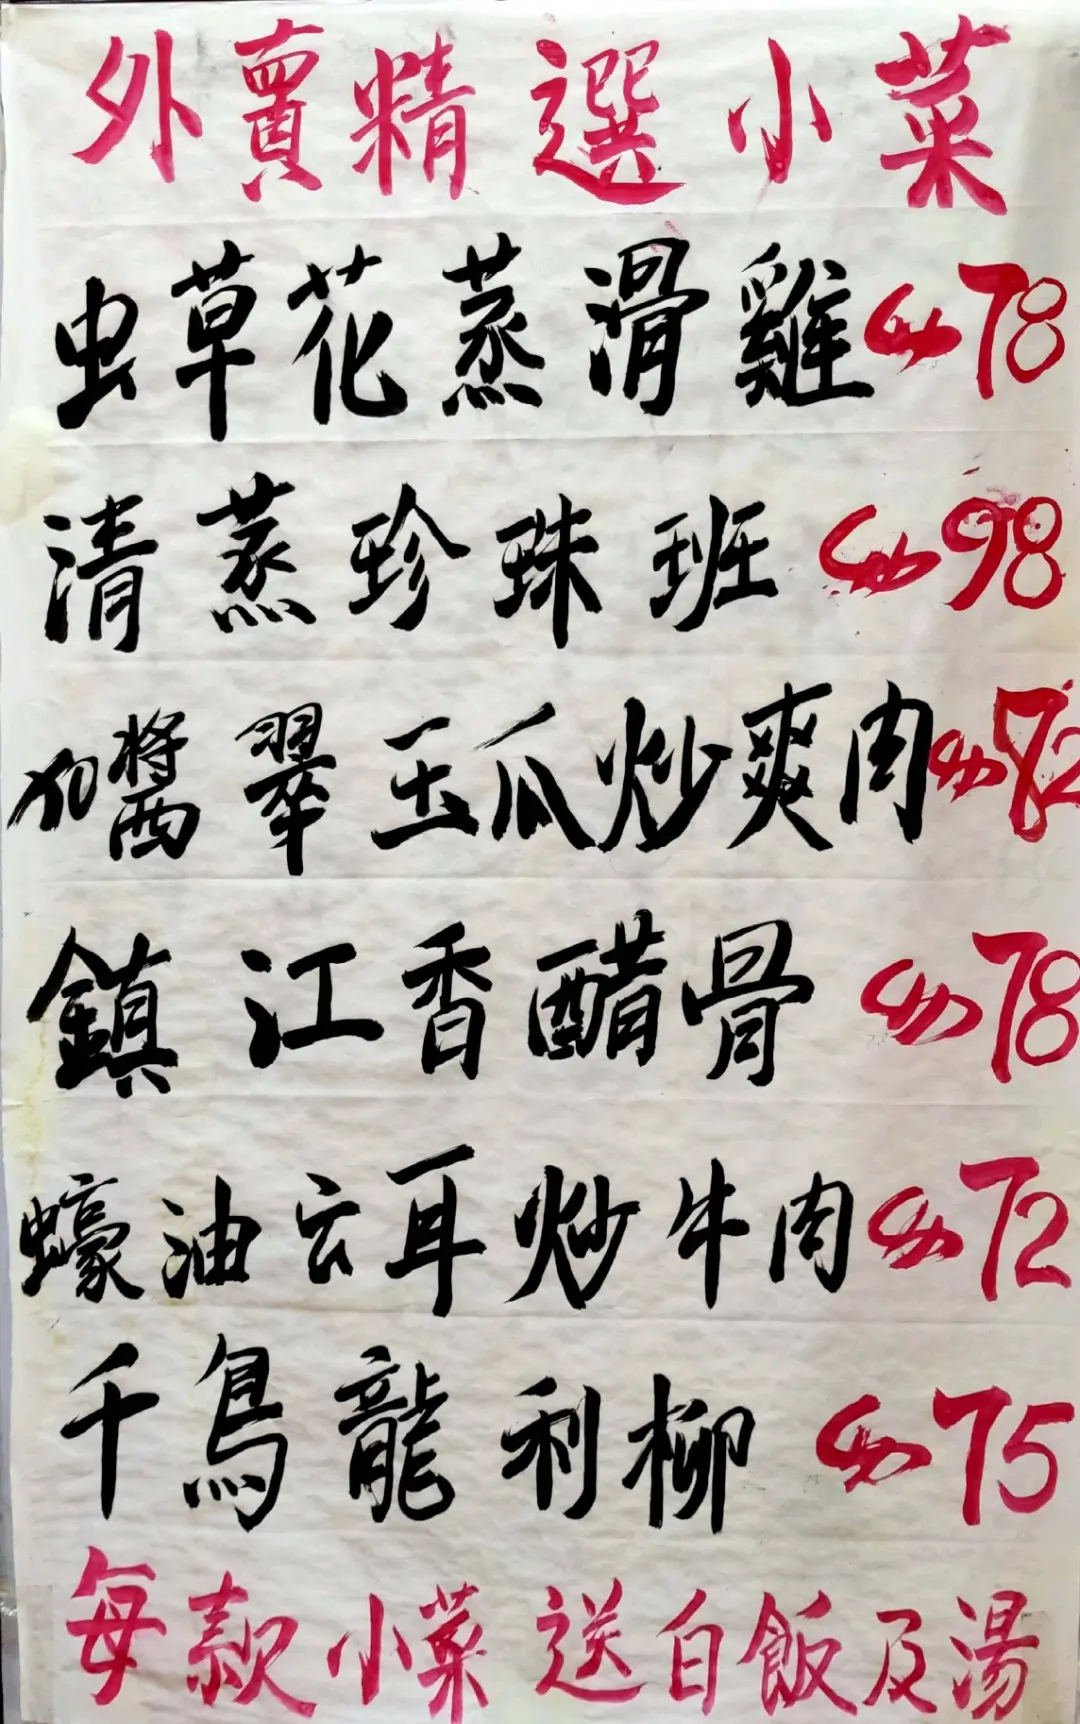 外賣精選小菜
虫草花蒸滑雞 78
清蒸珍珠班 98
XO醬翠玉瓜炒爽肉 72
鎮江香醋骨 78
蠔油云耳炒牛肉 72
千島龍利柳 75
每款小菜送白飯及湯